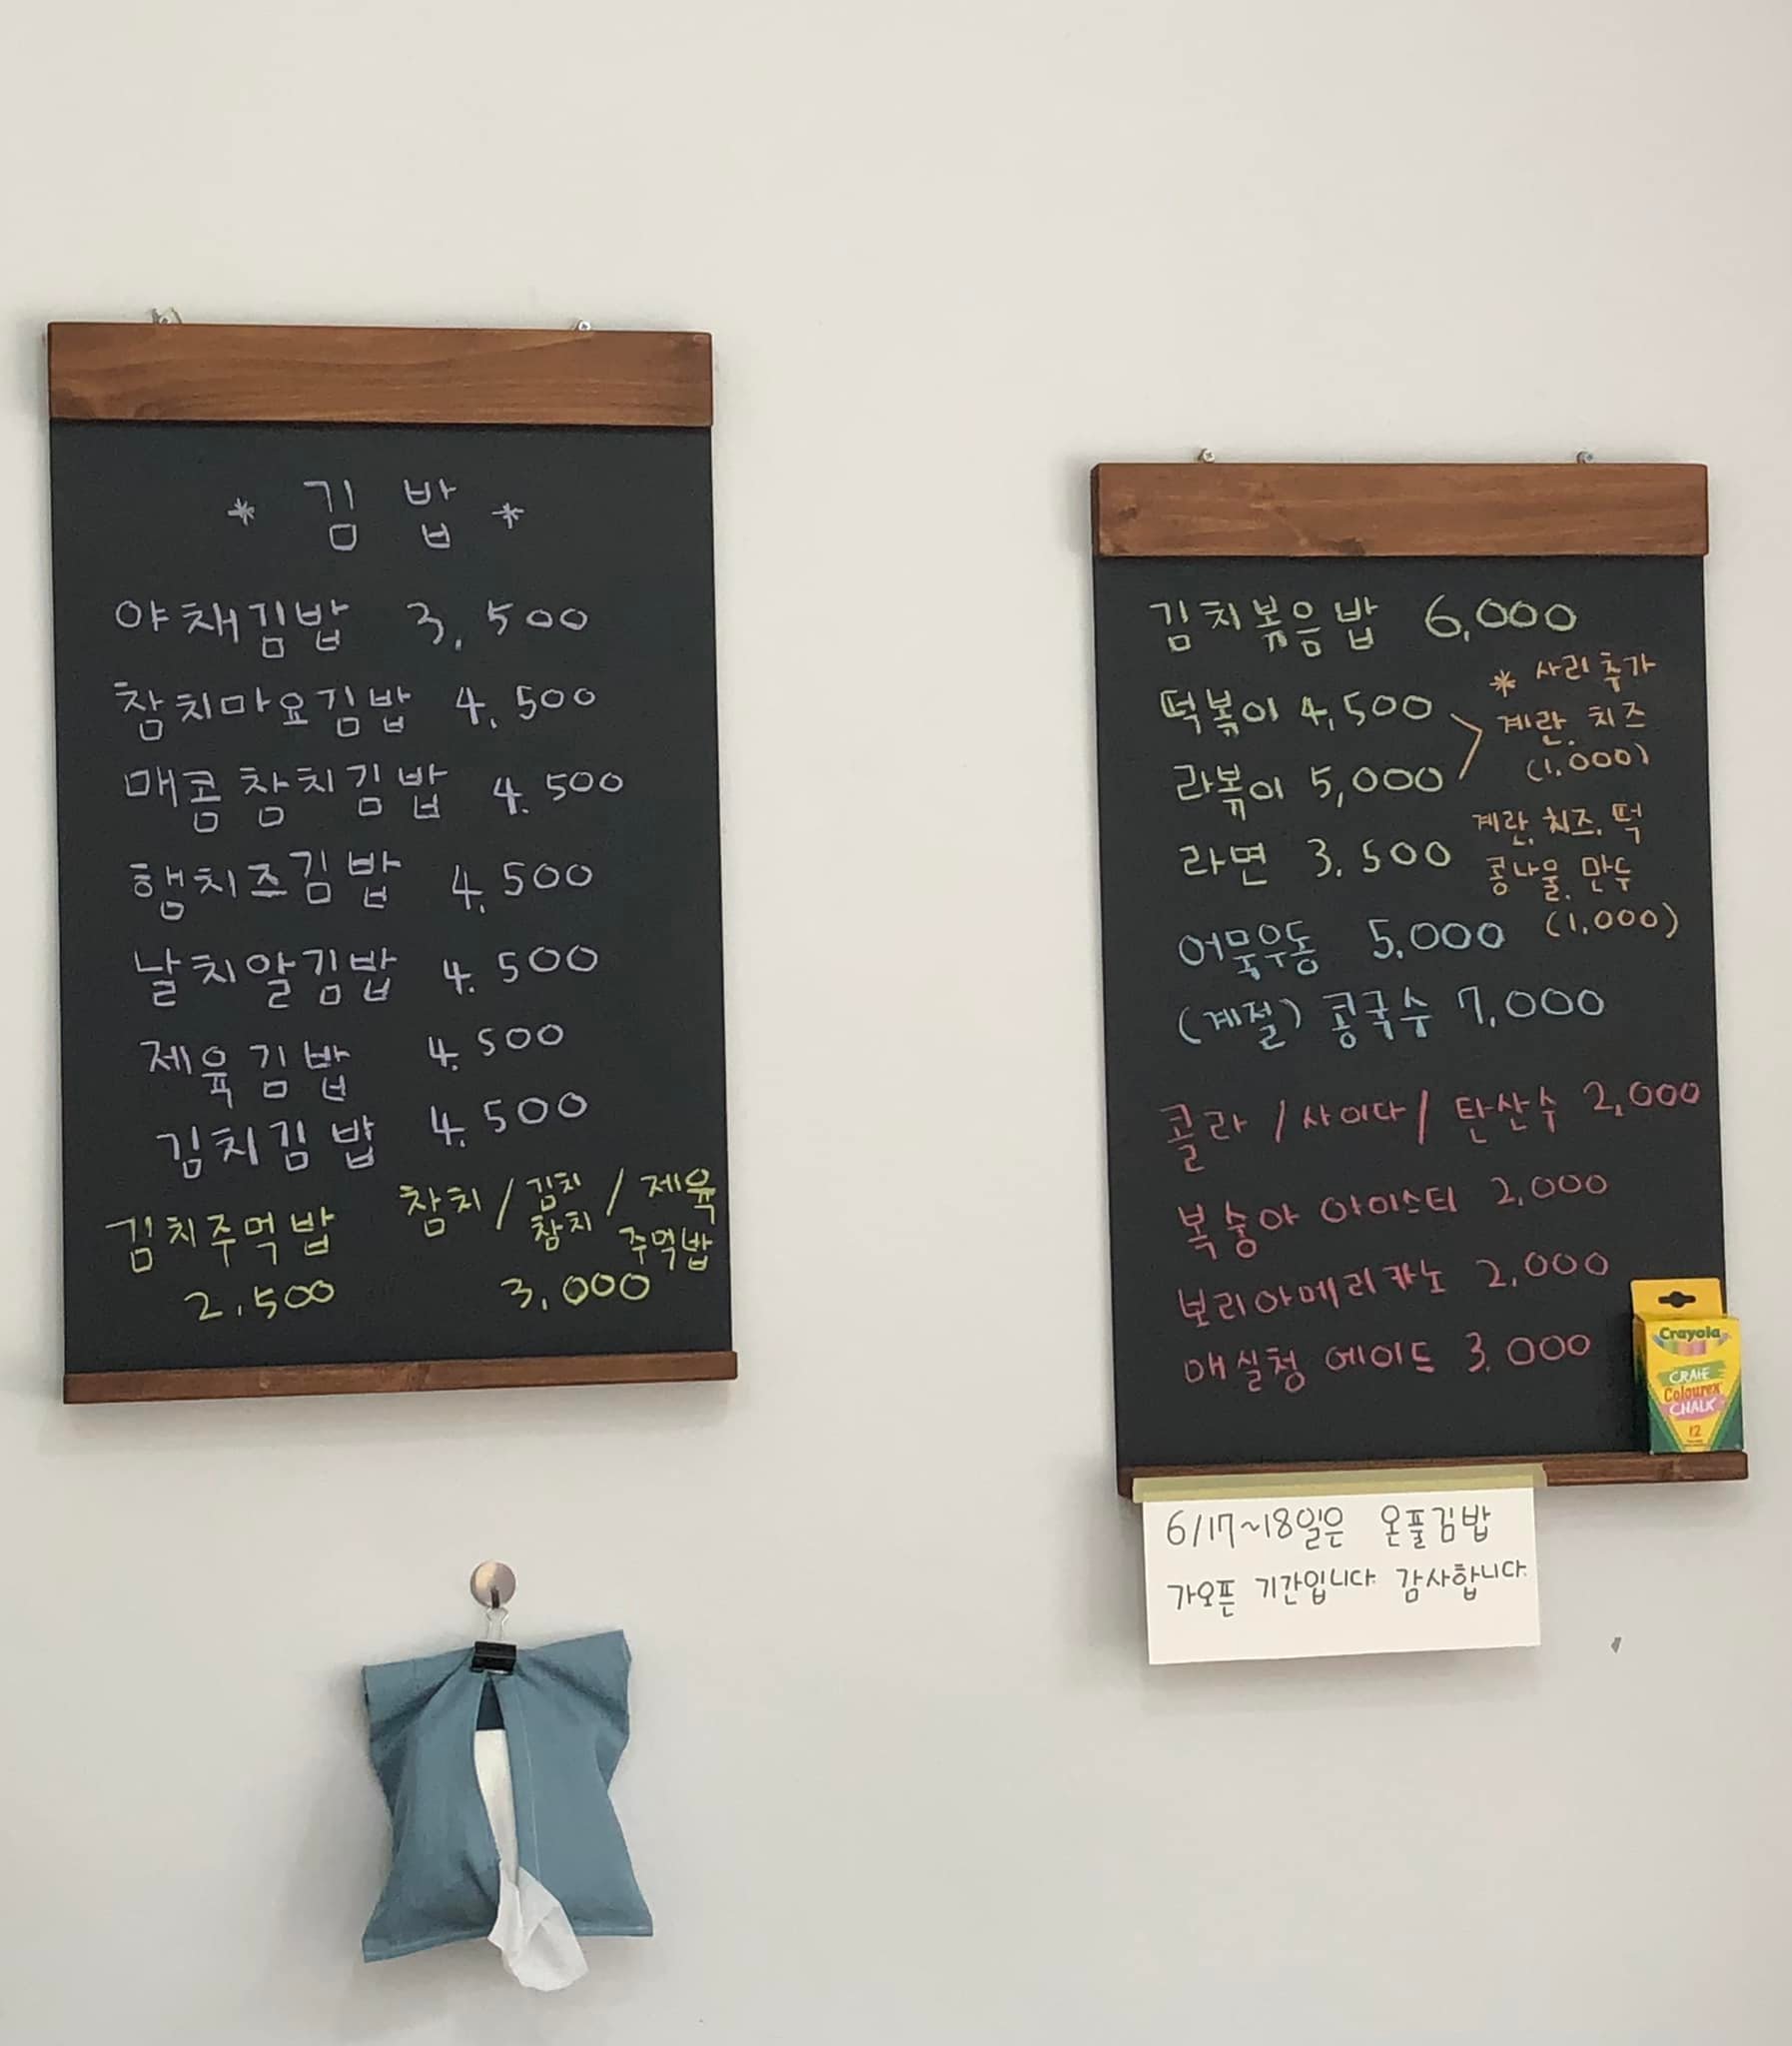 * 김 밥 *
야채김밥 3,500
참치마요김밥 4,500
매콤참치김밥 4.500
햄치즈김밥 4,500
날치알김밥 4.500
제육김밥 4.500
김치김밥 4.500
김치주먹밥
2.500
참치/김치참치/제육
주먹밥
3,000
김치볶음밥 6,000
떡볶이 4,500
라볶이 5,000
* 사리추가
계란, 치즈
(1,000)
라면 3,500
계란, 치즈, 떡
콩나물, 만두
(1,000)
어묵우동 5,000
(계절) 콩국수 7,000
콜라/사이다/탄산수 2,000
복숭아 아이스티 2,000
보리아메리카노 2,000
매실청 에이드 3,000
Crayola
CRAIE
Colourex
CHALK
12
6/17~18일은 온풀김밥
가오픈 기간입니다. 감사합니다.